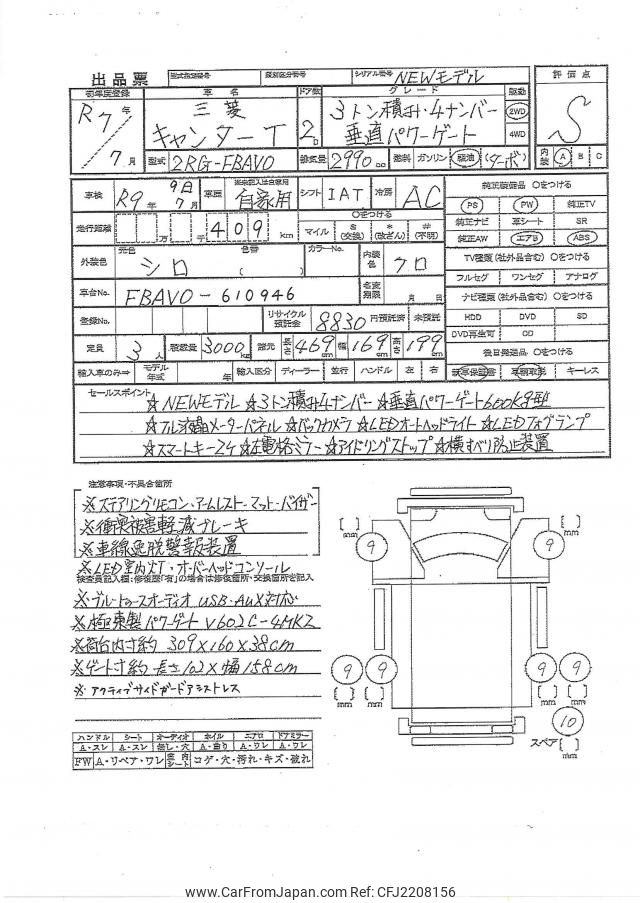 出品票 型式指定番号 類別区分番号 シリアル番号 NEWモデル 評価点
初年度登録 車名 ドア数 グレード 駆動 S
R7年 三菱 3トン積み・4ナンバー 2WD
7月 キャンターT 2D 垂直パワーゲート 4WD
型式 2RG-FBAV0 排気量 2990cc 燃料 ガソリン 軽油 (ターボ) 内装 A B C
車検 R9年7月 9日 車歴 自家用 シフト IAT 冷房 AC 純正装備品 〇をつける
PS PW 純正TV
走行距離 万 千 409 km 〇をつける
マイル $(交換) *(改ざん) #(不明)
純正ナビ 革シート SR
純正AW エアB ABS
外装色 元色 シロ 色番 ( ) カラーNo. 内装色 クロ
TV種類(社外品含む) 〇をつける
フルセグ ワンセグ アナログ
車台No. FBAV0-610946 名変期限 月 日
ナビ種類(社外品含む) 〇をつける
登録No. リサイクル預託金 8830 円預託済 未預託
HDD DVD SD
DVD再生可 CD
定員 3人 積載量 3000kg 諸元 長さ 469cm 幅 169cm 高さ 199cm
後日発送品 〇をつける
輸入車のみ⇒ モデル年式 年 輸入区分 ディーラー 並行 ハンドル 左 右
新車保証書 車輌取説 キーレス
セールスポイント ☆NEWモデル ☆3トン積み4ナンバー ☆垂直パワーゲート600kg型
☆フル液晶メーターパネル ☆バックカメラ ☆LEDオートヘッドライト ☆LEDフォグランプ
☆スマートキー2ケ ☆左電格ミラー ☆アイドリングストップ ☆横すべり防止装置
注意事項・不具合箇所
※ステアリングリモコン・アームレスト・マット・バイザー
※衝突被害軽減ブレーキ
※車線逸脱警報装置
※LED室内灯・オーバーヘッドコンソール
検査員記入欄:修復歴「有」の場合は修復箇所・交換箇所を記入
※ブルートゥースオーディオ USB・AUX対応
※極東製パワーゲート V602C-4MKZ
※荷台内寸約 309×160×38cm
※ゲート寸約 長さ102×幅158cm
※アクティブサイドガードアシストレス
[ ] mm 9 9 [ ] mm
9 9 9 9
[ ] mm [ ] mm [ ] mm [ ] mm
10
スペア [ ] mm
ハンドル シート オーディオ ホイル エアロ ドアミラー
A・スレ A・スレ 無し・穴 A・曲り A・ワレ A・ワレ
FW A・リペア・ワレ 室内シート コゲ・穴・汚れ・キズ・破れ
www.CarFromJapan.com Ref: CFJ2208156